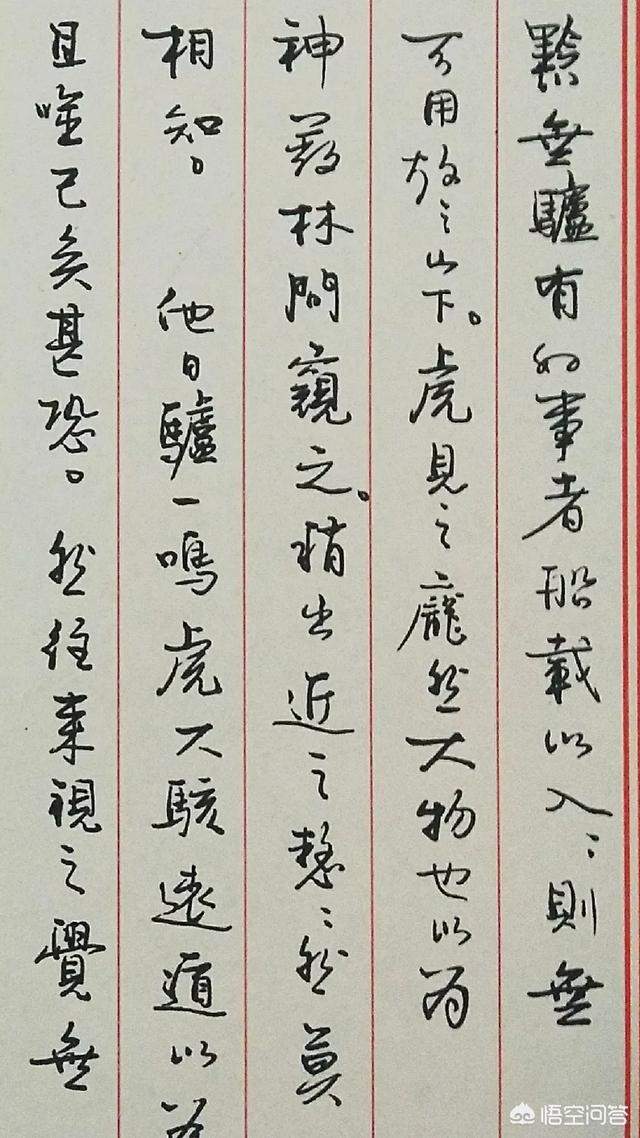 黔無驢有好事者船載以入〻則無
可用放之山下。虎見之龐然大物也以为
神蔽林間窺之。稍出近之慭〻然莫
相知。 他日驢一鳴虎大駭遠遁以为
且噬己矣甚恐。然往来視之覺無
悟空问答